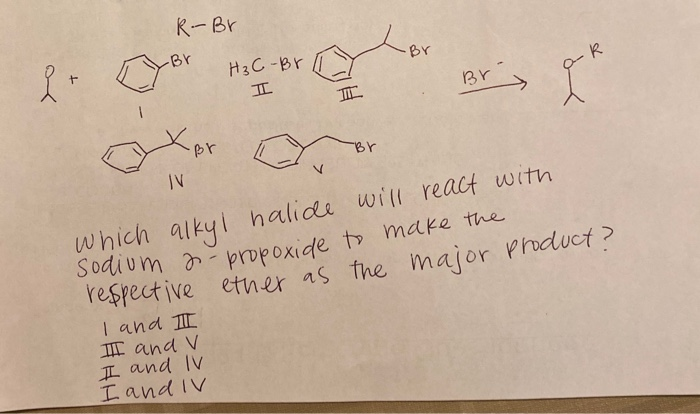 R-Br
+ Br H3C-Br Br Br⁻ O R
I II III
Br Br
IV V
which alkyl halide will react with
sodium 2-propoxide to make the
respective ether as the major product?
I and III
III and V
II and IV
I and IV